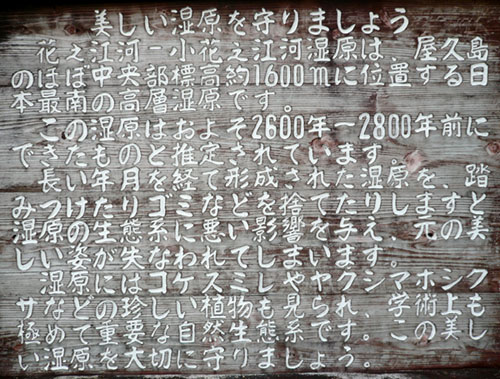 美しい湿原を守りましょう
花之江河ー小花之江河湿原は、屋久島
のほぼ中央部標高約1600mに位置する日
本最南の高層湿原です。
この湿原はおよそ2600年ー2800年前に
できたものと推定されています。
長い年月を経て形成された湿原を、踏
みつけたりゴミなどを捨てたりしますと
湿原の生態系に悪い影響を与え、元の美
しい姿が失なわれてしまいます。
湿原にはコケスミレやヤクシマホシク
サなどの珍しい植物も見られ、学術上も
極めて重要な自然生態系です。この美し
い湿原を大切に守りましょう。